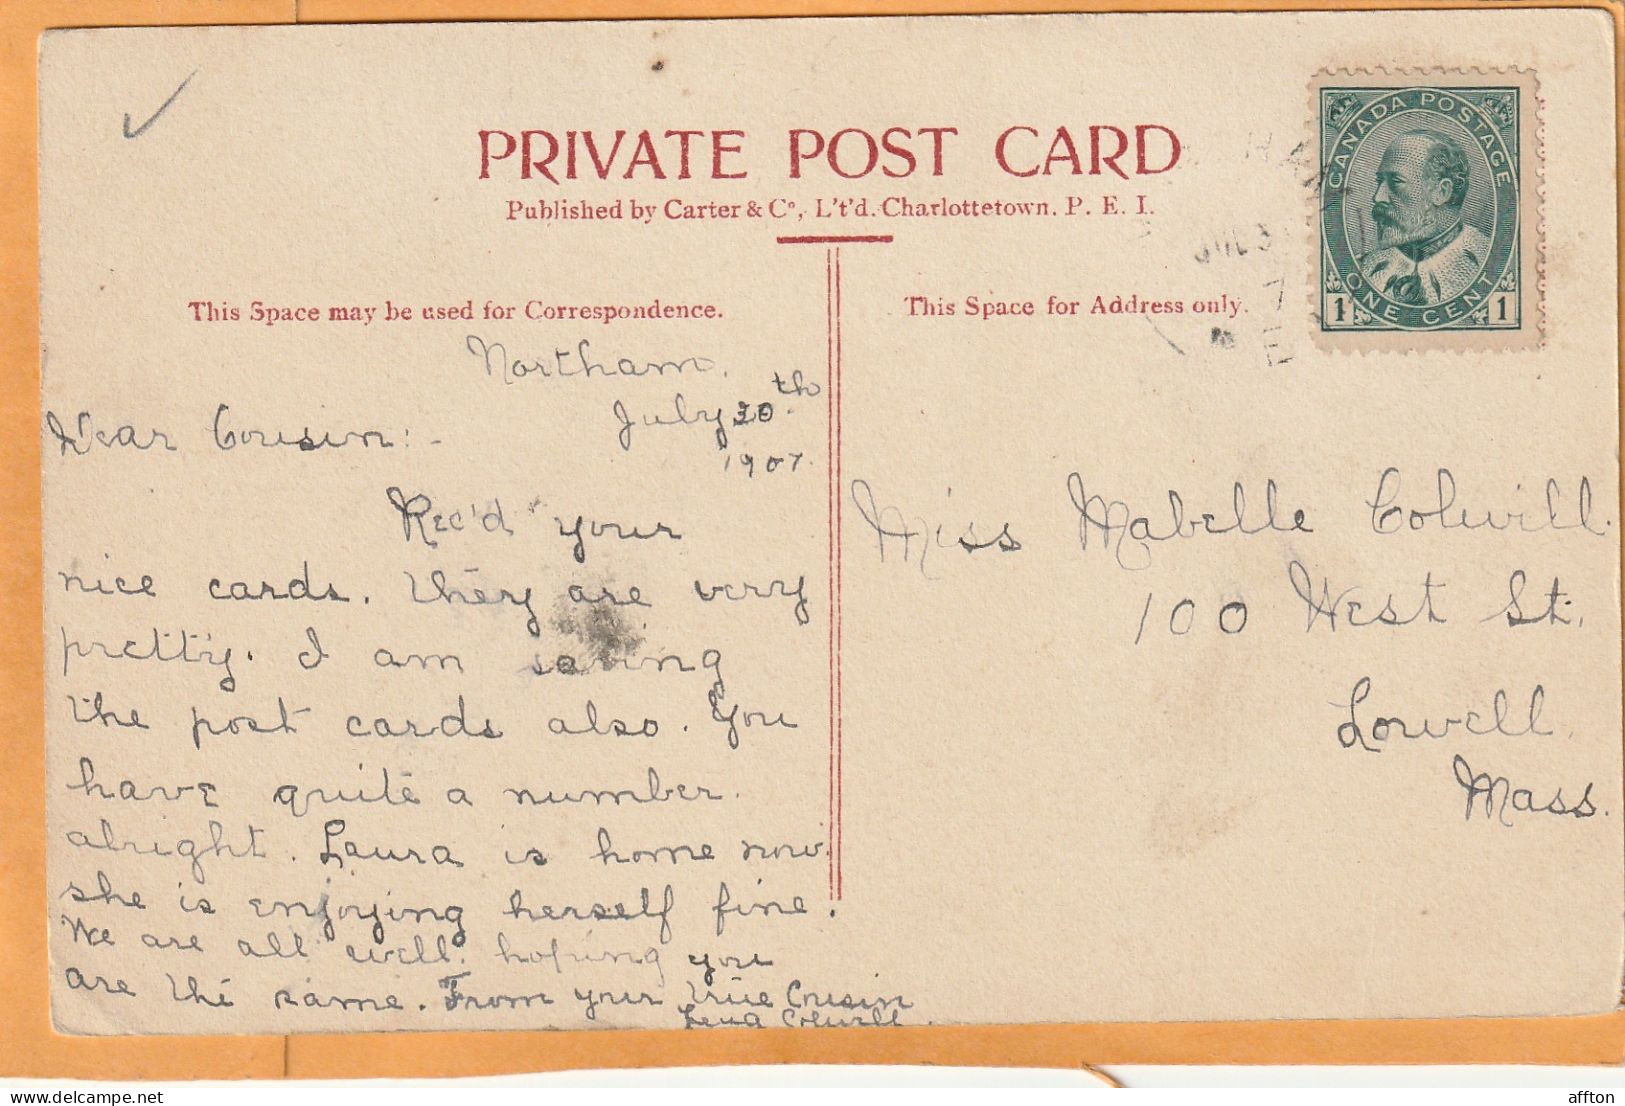 PRIVATE POST CARD
Published by Carter & Co, L't'd. Charlottetown. P. E. I.
This Space may be used for Correspondence.
This Space for Address only.
CANADA POSTAGE
ONE CENT
1 1
Northam.
July 30th
1907.
Dear Cousin:-
Rec'd your
nice cards. They are very
pretty. I am saving
the post cards also. You
have quite a number.
alright. Laura is home now.
she is enjoying herself fine.
We are all well. hoping you
are the same. From your true Cousin
Lena Colwill.
Miss Mabelle Colwill.
100 West St.
Lowell,
Mass.
affton